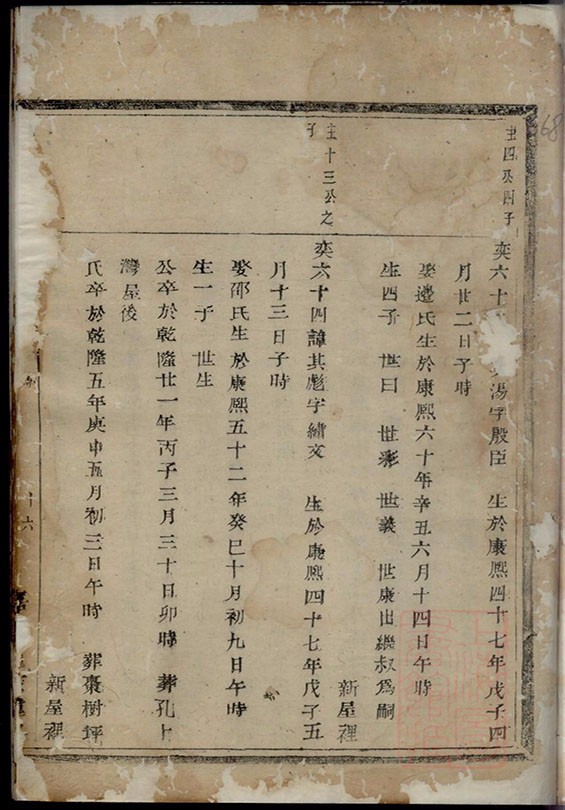 圭四公四子
奕六十 湯字殷臣 生於康熙四十七年戊子四
月廿二日子時
娶邊氏生於康熙六十年辛丑六月十四日午時
生四子 世曰 世彩 世義 世康出繼叔爲嗣
新屋裡
圭十三公之
子
奕六十四諱其彪字繡文 生於康熙四十七年戊子五
月十三日子時
娶邵氏生於康熙五十二年癸巳十月初九日午時
生一子 世生
公卒於乾隆廿一年丙子三月三十日卯時 葬孔上
灣屋後
氏卒於乾隆五年庚申五月初三日午時 葬棗樹坪
新屋裡
十六
68